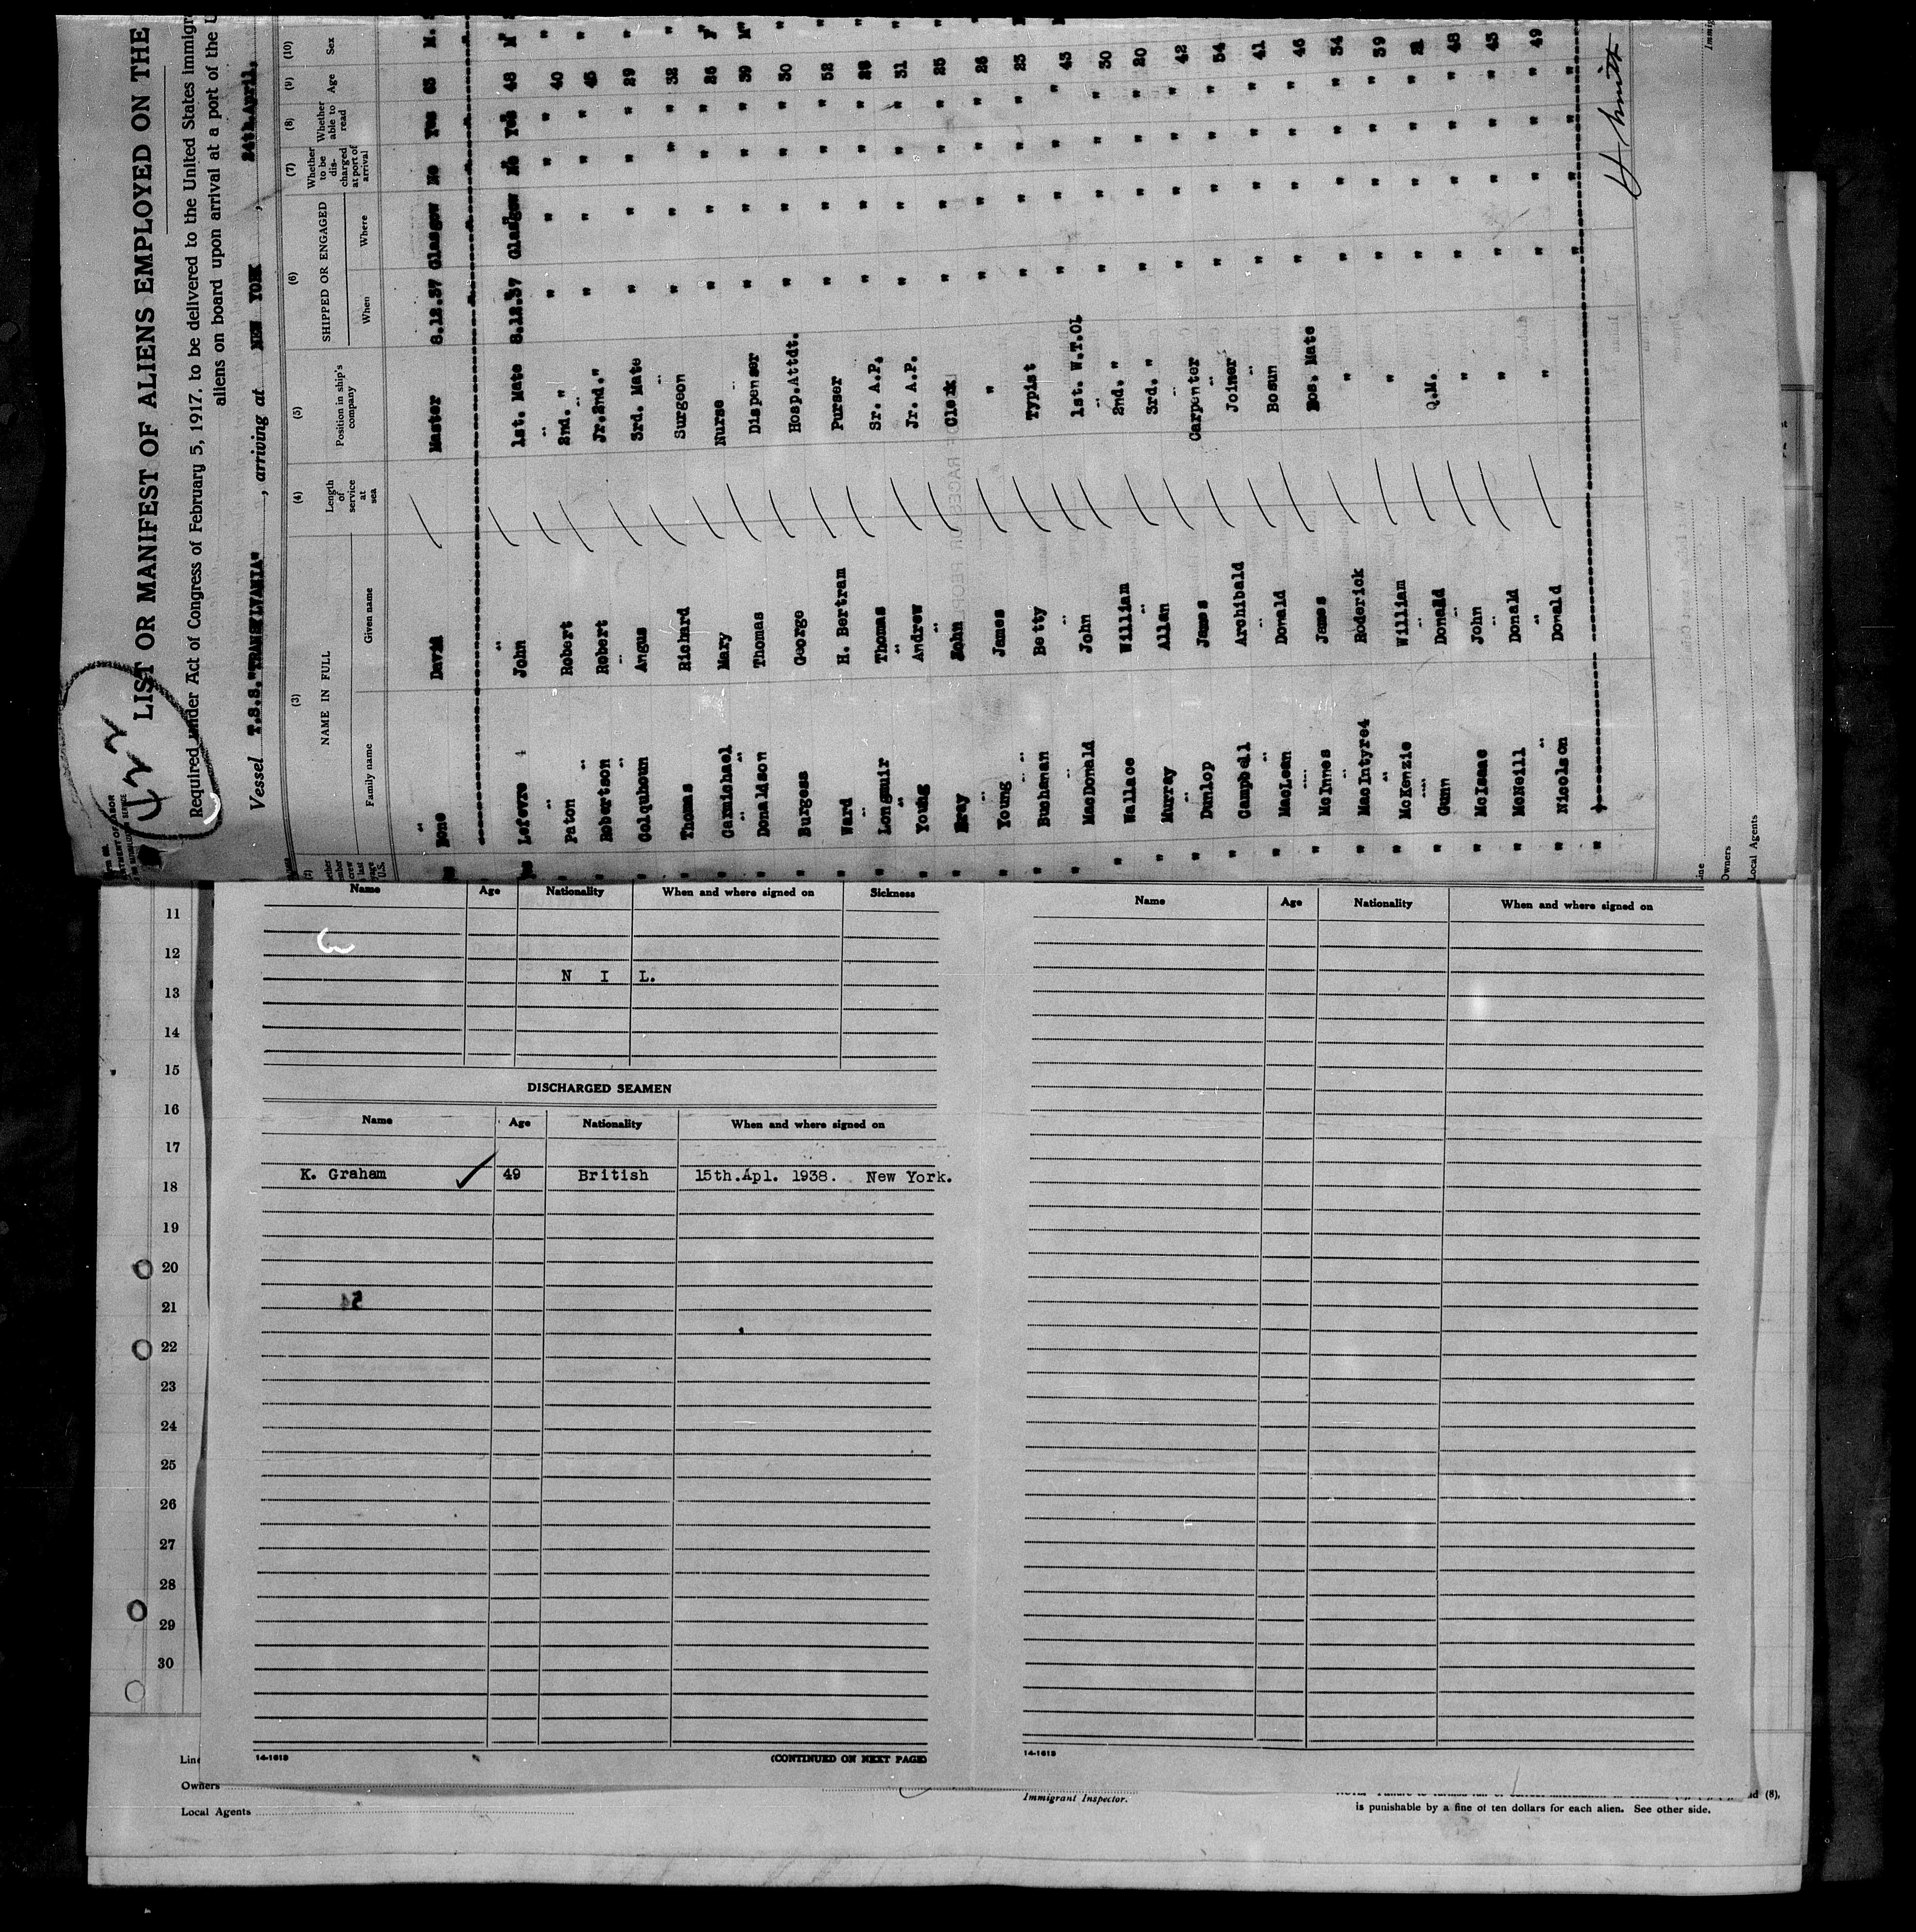 LIST OR MANIFEST OF ALIENS EMPLOYED ON THE
Required under Act of Congress of February 5, 1917, to be delivered to the United States immigr
aliens on board upon arrival at a port of the U
Vessel T.S.S."TRANSYLVANIA" , arriving at NEW YORK , 24th.April,
(3) (4) (5) (6) (7) (8) (9) (10)
NAME IN FULL Length of service at sea Position in ship's company SHIPPED OR ENGAGED Whether to be discharged at port of arrival Whether able to read Age Sex
Family name Given name When Where
Bone David Master 8.12.37 Glasgow No Yes 63 M.
Lefevre John 1st. Mate 8.12.37 Glasgow No Yes 48 M
Paton Robert 2nd. " " " " " 40 "
Robertson Robert Jr.2nd." " " " " 45 "
Colquhoun Angus 3rd. Mate " " " " 29 "
Thomas Richard Surgeon " " " " 32 "
Carmichael Mary Nurse " " " " 26 F
Donaldson Thomas Dispenser " " " " 39 M
Burgess George Hosp.Attdt. " " " " 30 "
Ward H. Bertram Purser " " " " 52 "
Longmuir Thomas Sr. A.P. " " " " 28 "
Young Andrew Jr. A.P. " " " " 31 "
Bray John Clerk " " " " 25 "
Young James " " " " " 26 "
Buchanan Betty Typist " " " " 23
MacDonald John 1st. W.T.O. " " " " 43
Wallace William 2nd. " " " " " 30
Murray Allan 3rd. " " " " " 20
Dunlop James Carpenter " " " " 42
Campbell Archibald Joiner " " " " 54
MacLean Donald Bosun " " " " 41
McInnes James Bos. Mate " " " " 46
MacIntyre4 Roderick " " " " " 34
McKenzie William " " " " " 39
Gunn Donald Q.M. " " " " 21
McIsaac John " " " " " 48
McNeill Donald " " " " " 43
Nicolson Donald " " " " " 49
H Smith
Line
Owners
Local Agents
Name Age Nationality When and where signed on Sickness
N I L.
DISCHARGED SEAMEN
Name Age Nationality When and where signed on
K. Graham 49 British 15th.Apl. 1938. New York.
14-1613 (CONTINUED ON NEXT PAGE)
Name Age Nationality When and where signed on
14-1613
11
12
13
14
15
16
17
18
19
20
21
22
23
24
25
26
27
28
29
30
Line
Owners
Local Agents
Immigrant Inspector.
nd (8),
is punishable by a fine of ten dollars for each alien. See other side.